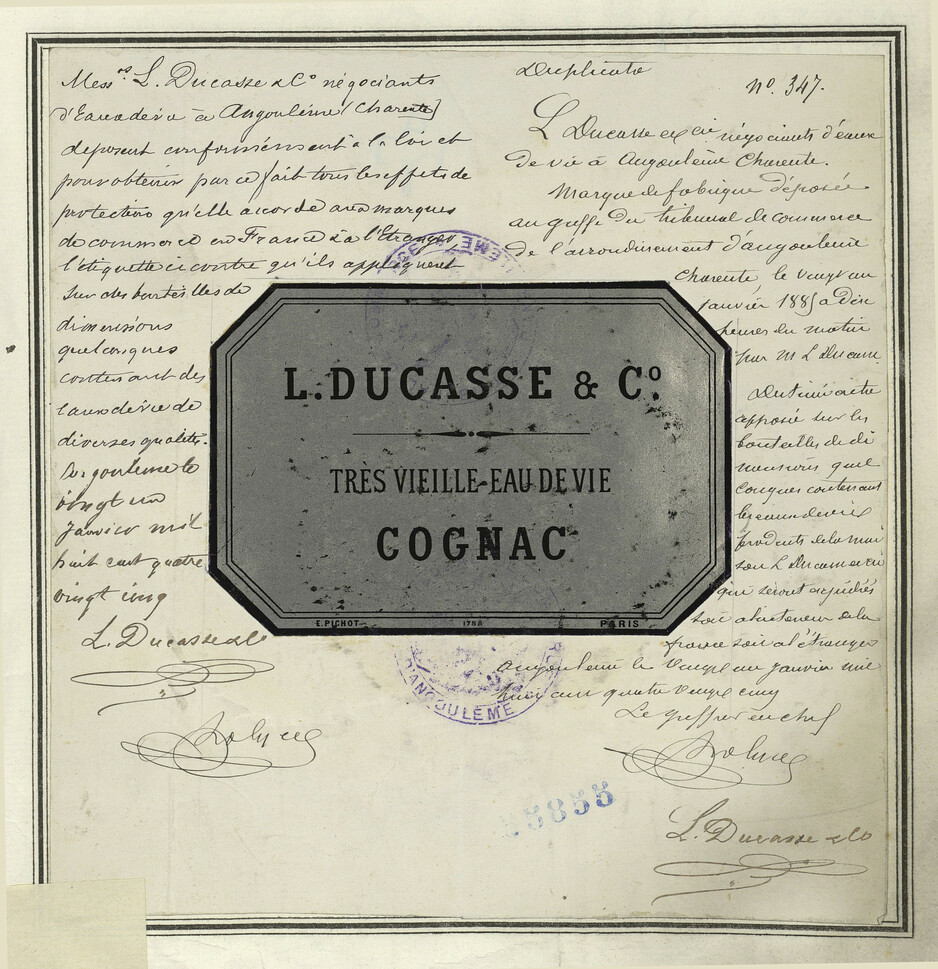 Mess.rs L. Ducasse & Co négociants
d'Eaux de vie à Angoulême (Charente)
déposent conformément à la loi et
pour obtenir par ce fait tous les effets de
protection qu'elle accorde aux marques
de commerce en France & à l'Etranger,
l'étiquette ci contre qu'ils appliquent
sur des bouteilles de
dimensions
quelconques
contenant des
eaux de vie de
diverses qualités.
Angoulême le
vingt un
Janvier mil
huit cent quatre
vingt cinq
L. Ducasse & Co
Duplicata
no. 347.
L Ducasse et Cie négociants d'eaux
de vie à Angoulême Charente.
Marque de fabrique déposée
au greffe du tribunal de commerce
de l'arrondissement d'angoulême
Charente, le vingt un
janvier 1885 à dix
heures du matin
par M L Ducasse
apposée sur les
bouteilles de di
mensions quel
conques contenant
les eaux de vie
produits de la mai
son L Ducasse et Cie
qui seront expédiés
soit à l'intérieur de la
france soit à l'étranger
angoulême le vingt un janvier mil
huit cent quatre vingt cinq
Le greffier en chef
L. Ducasse & Co
L. DUCASSE & Co.
TRÈS VIEILLE-EAU DE VIE
COGNAC
E.PICHOT 1788 PARIS
D'ANGOULÊME
5855